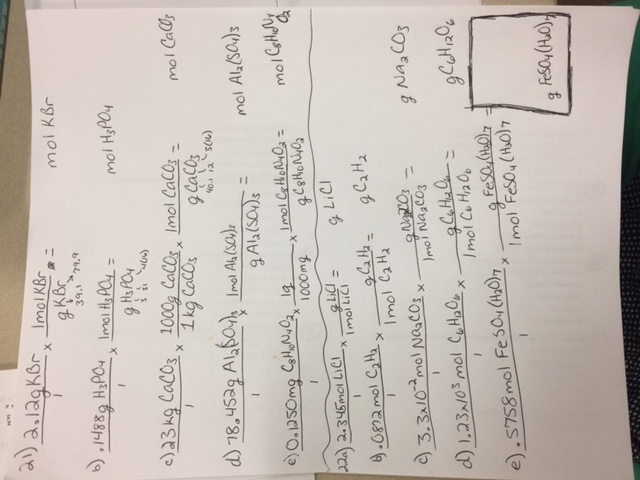 21) 2.12g KBr / 1 x 1mol KBr / g KBr = mol KBr
39.1 79.9
b) .1488g H3PO4 / 1 x 1mol H3PO4 / g H3PO4 = mol H3PO4
3 31 4(16)
c) 23 kg CaCO3 / 1 x 1000g CaCO3 / 1 kg CaCO3 x 1mol CaCO3 / g CaCO3 = mol CaCO3
40.1 12 3(16)
d) 78.452g Al2(SO4)3 / 1 x 1mol Al2(SO4)3 / g Al2(SO4)3 = mol Al2(SO4)3
e) 0.1250mg C8H10N4O2 / 1 x 1g / 1000mg x 1mol C8H10N4O2 / g C8H10N4O2 = mol C8H10N4O2
22a) 2.345mol LiCl / 1 x g LiCl / 1mol LiCl = g LiCl
b) .0872 mol C2H2 / 1 x g C2H2 / 1mol C2H2 = g C2H2
c) 3.3x10-2 mol Na2CO3 / 1 x g Na2CO3 / 1mol Na2CO3 = g Na2CO3
d) 1.23x103 mol C6H12O6 / 1 x g C6H12O6 / 1mol C6H12O6 = g C6H12O6
e) .5758mol FeSO4(H2O)7 / 1 x g FeSO4(H2O)7 / 1mol FeSO4(H2O)7 = g FeSO4(H2O)7